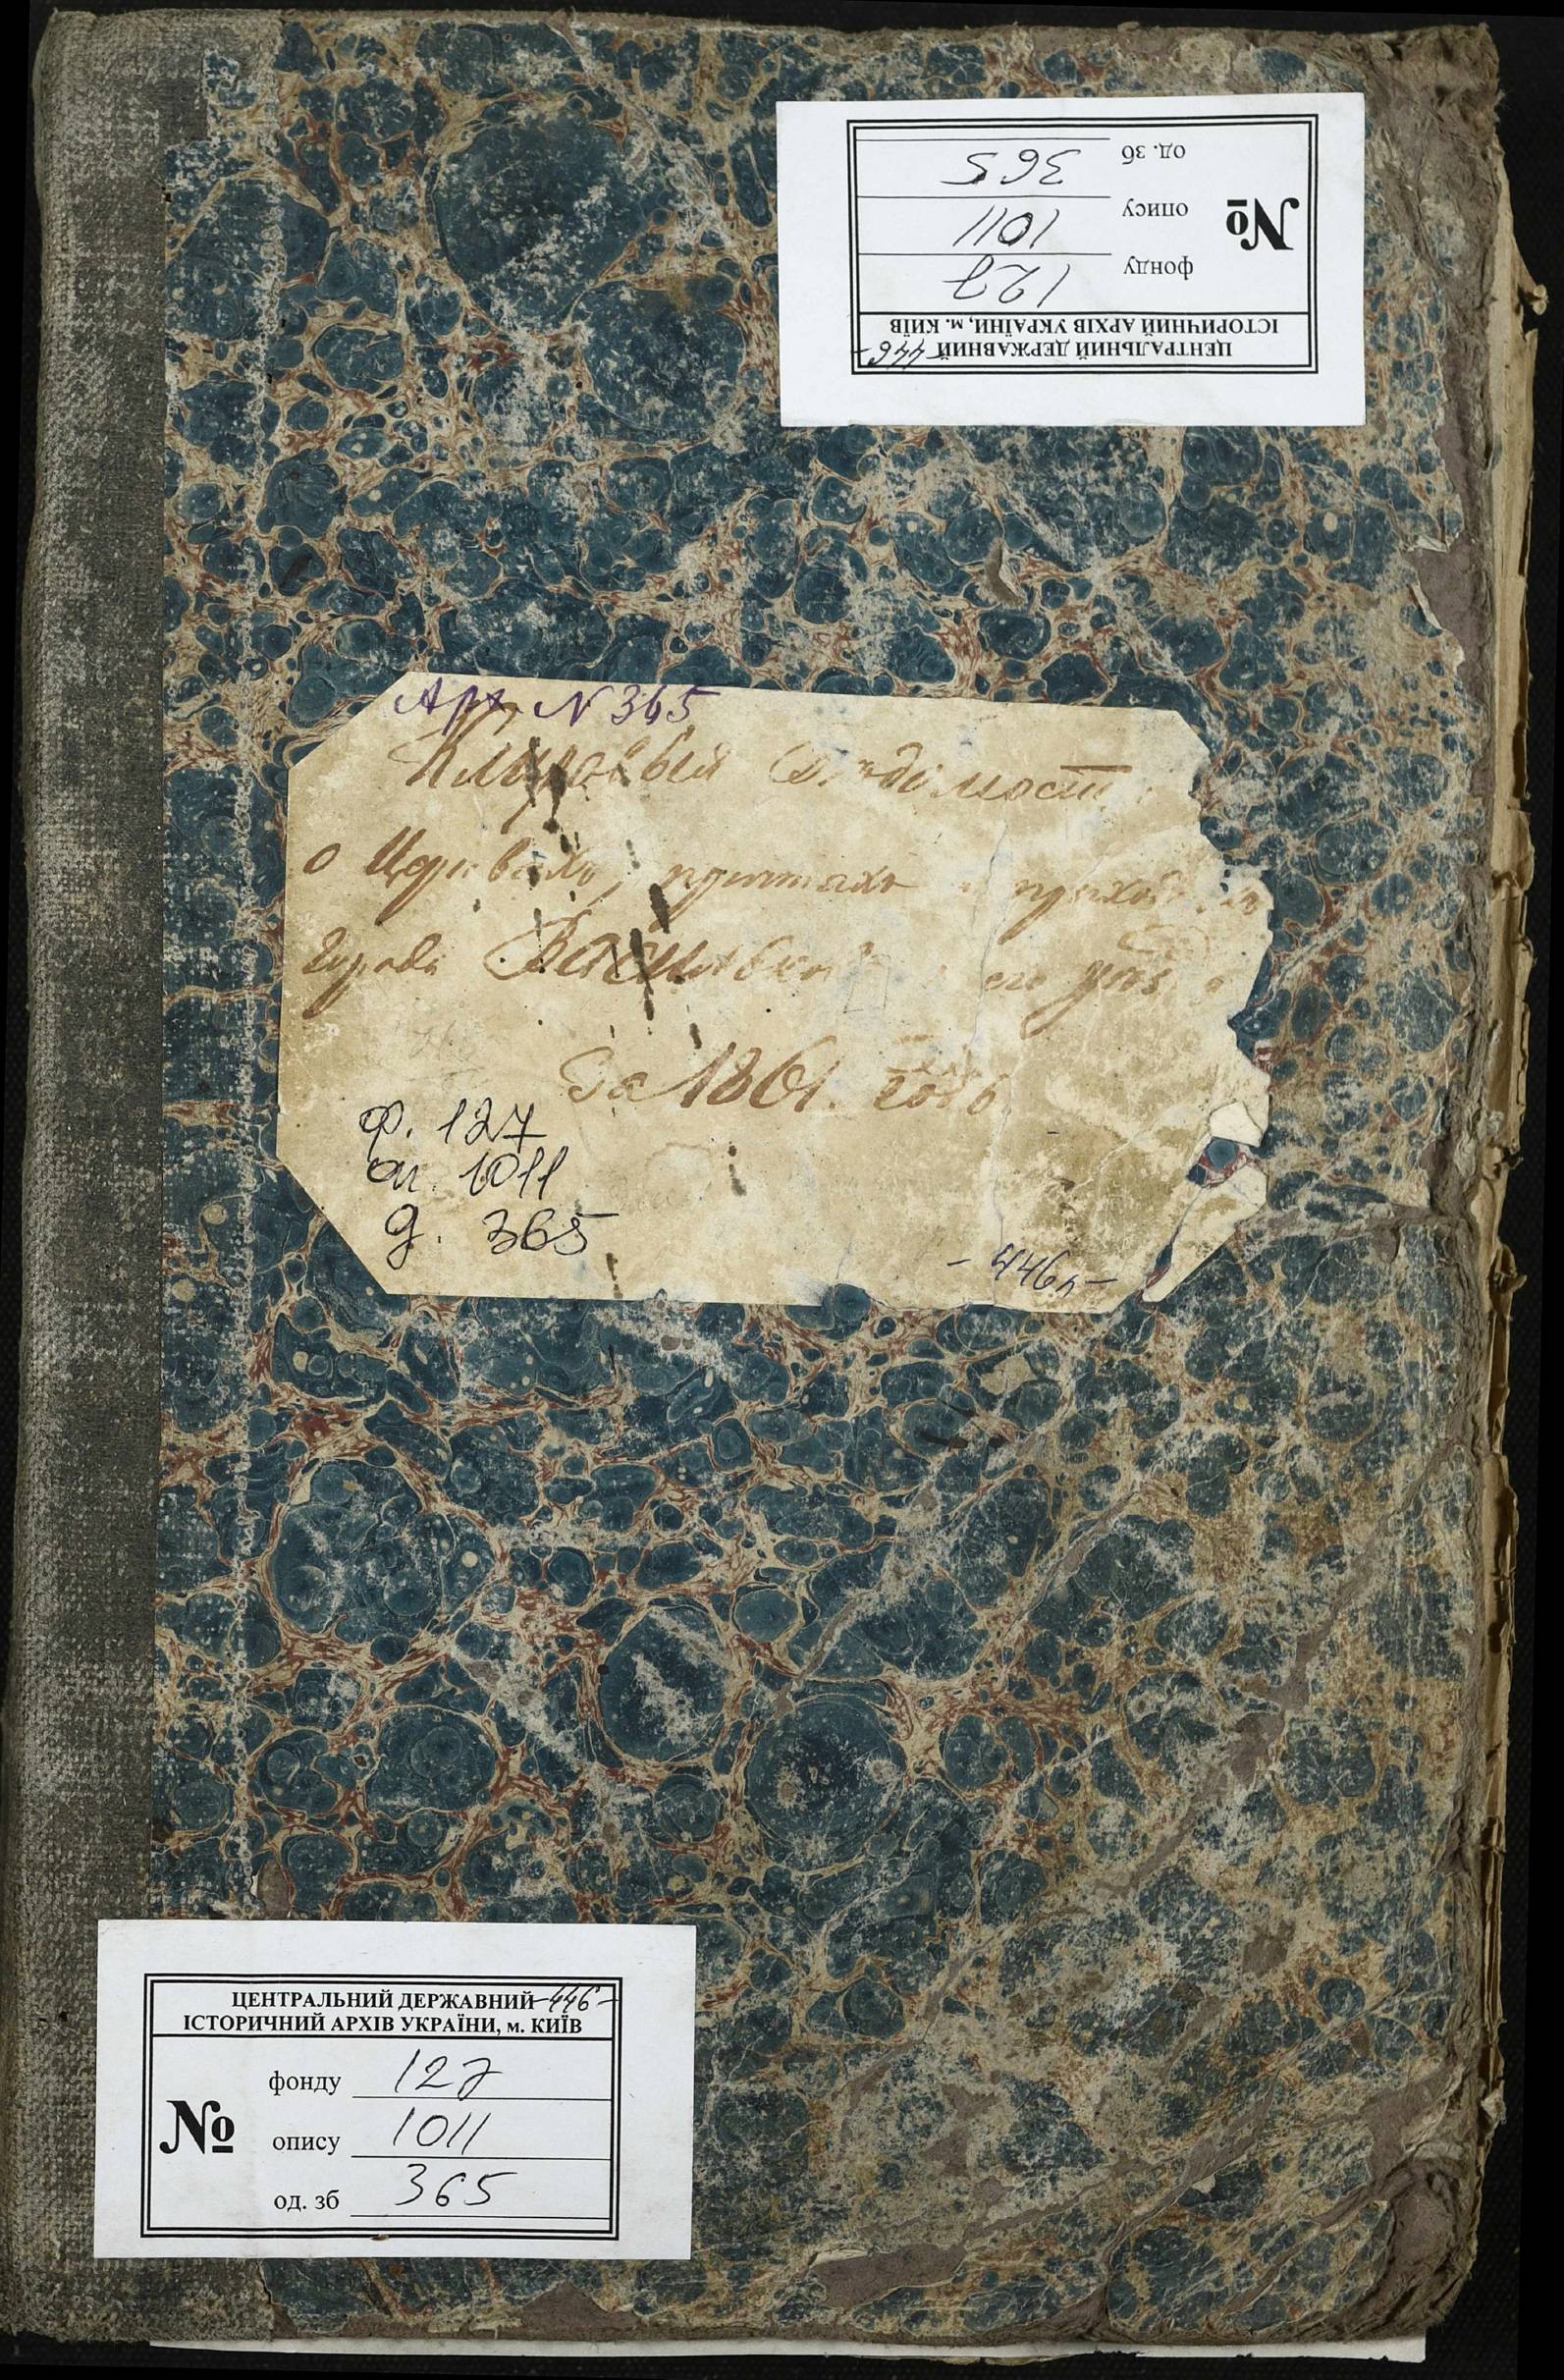 ЦЕНТРАЛЬНИЙ ДЕРЖАВНИЙ -446-
ІСТОРИЧНИЙ АРХІВ УКРАЇНИ, м. КИЇВ
№
фонду 127
опису 1011
од. зб 365
Арх. N 365
Клировыя Вѣдомост
о Церквахъ, причтахъ и приход
города Василькова его уѣз
За 1861. годъ
ф. 127
оп. 1011
д. 365
- 446 л -
ЦЕНТРАЛЬНИЙ ДЕРЖАВНИЙ -446-
ІСТОРИЧНИЙ АРХІВ УКРАЇНИ, м. КИЇВ
№
фонду 127
опису 1011
од. зб 365